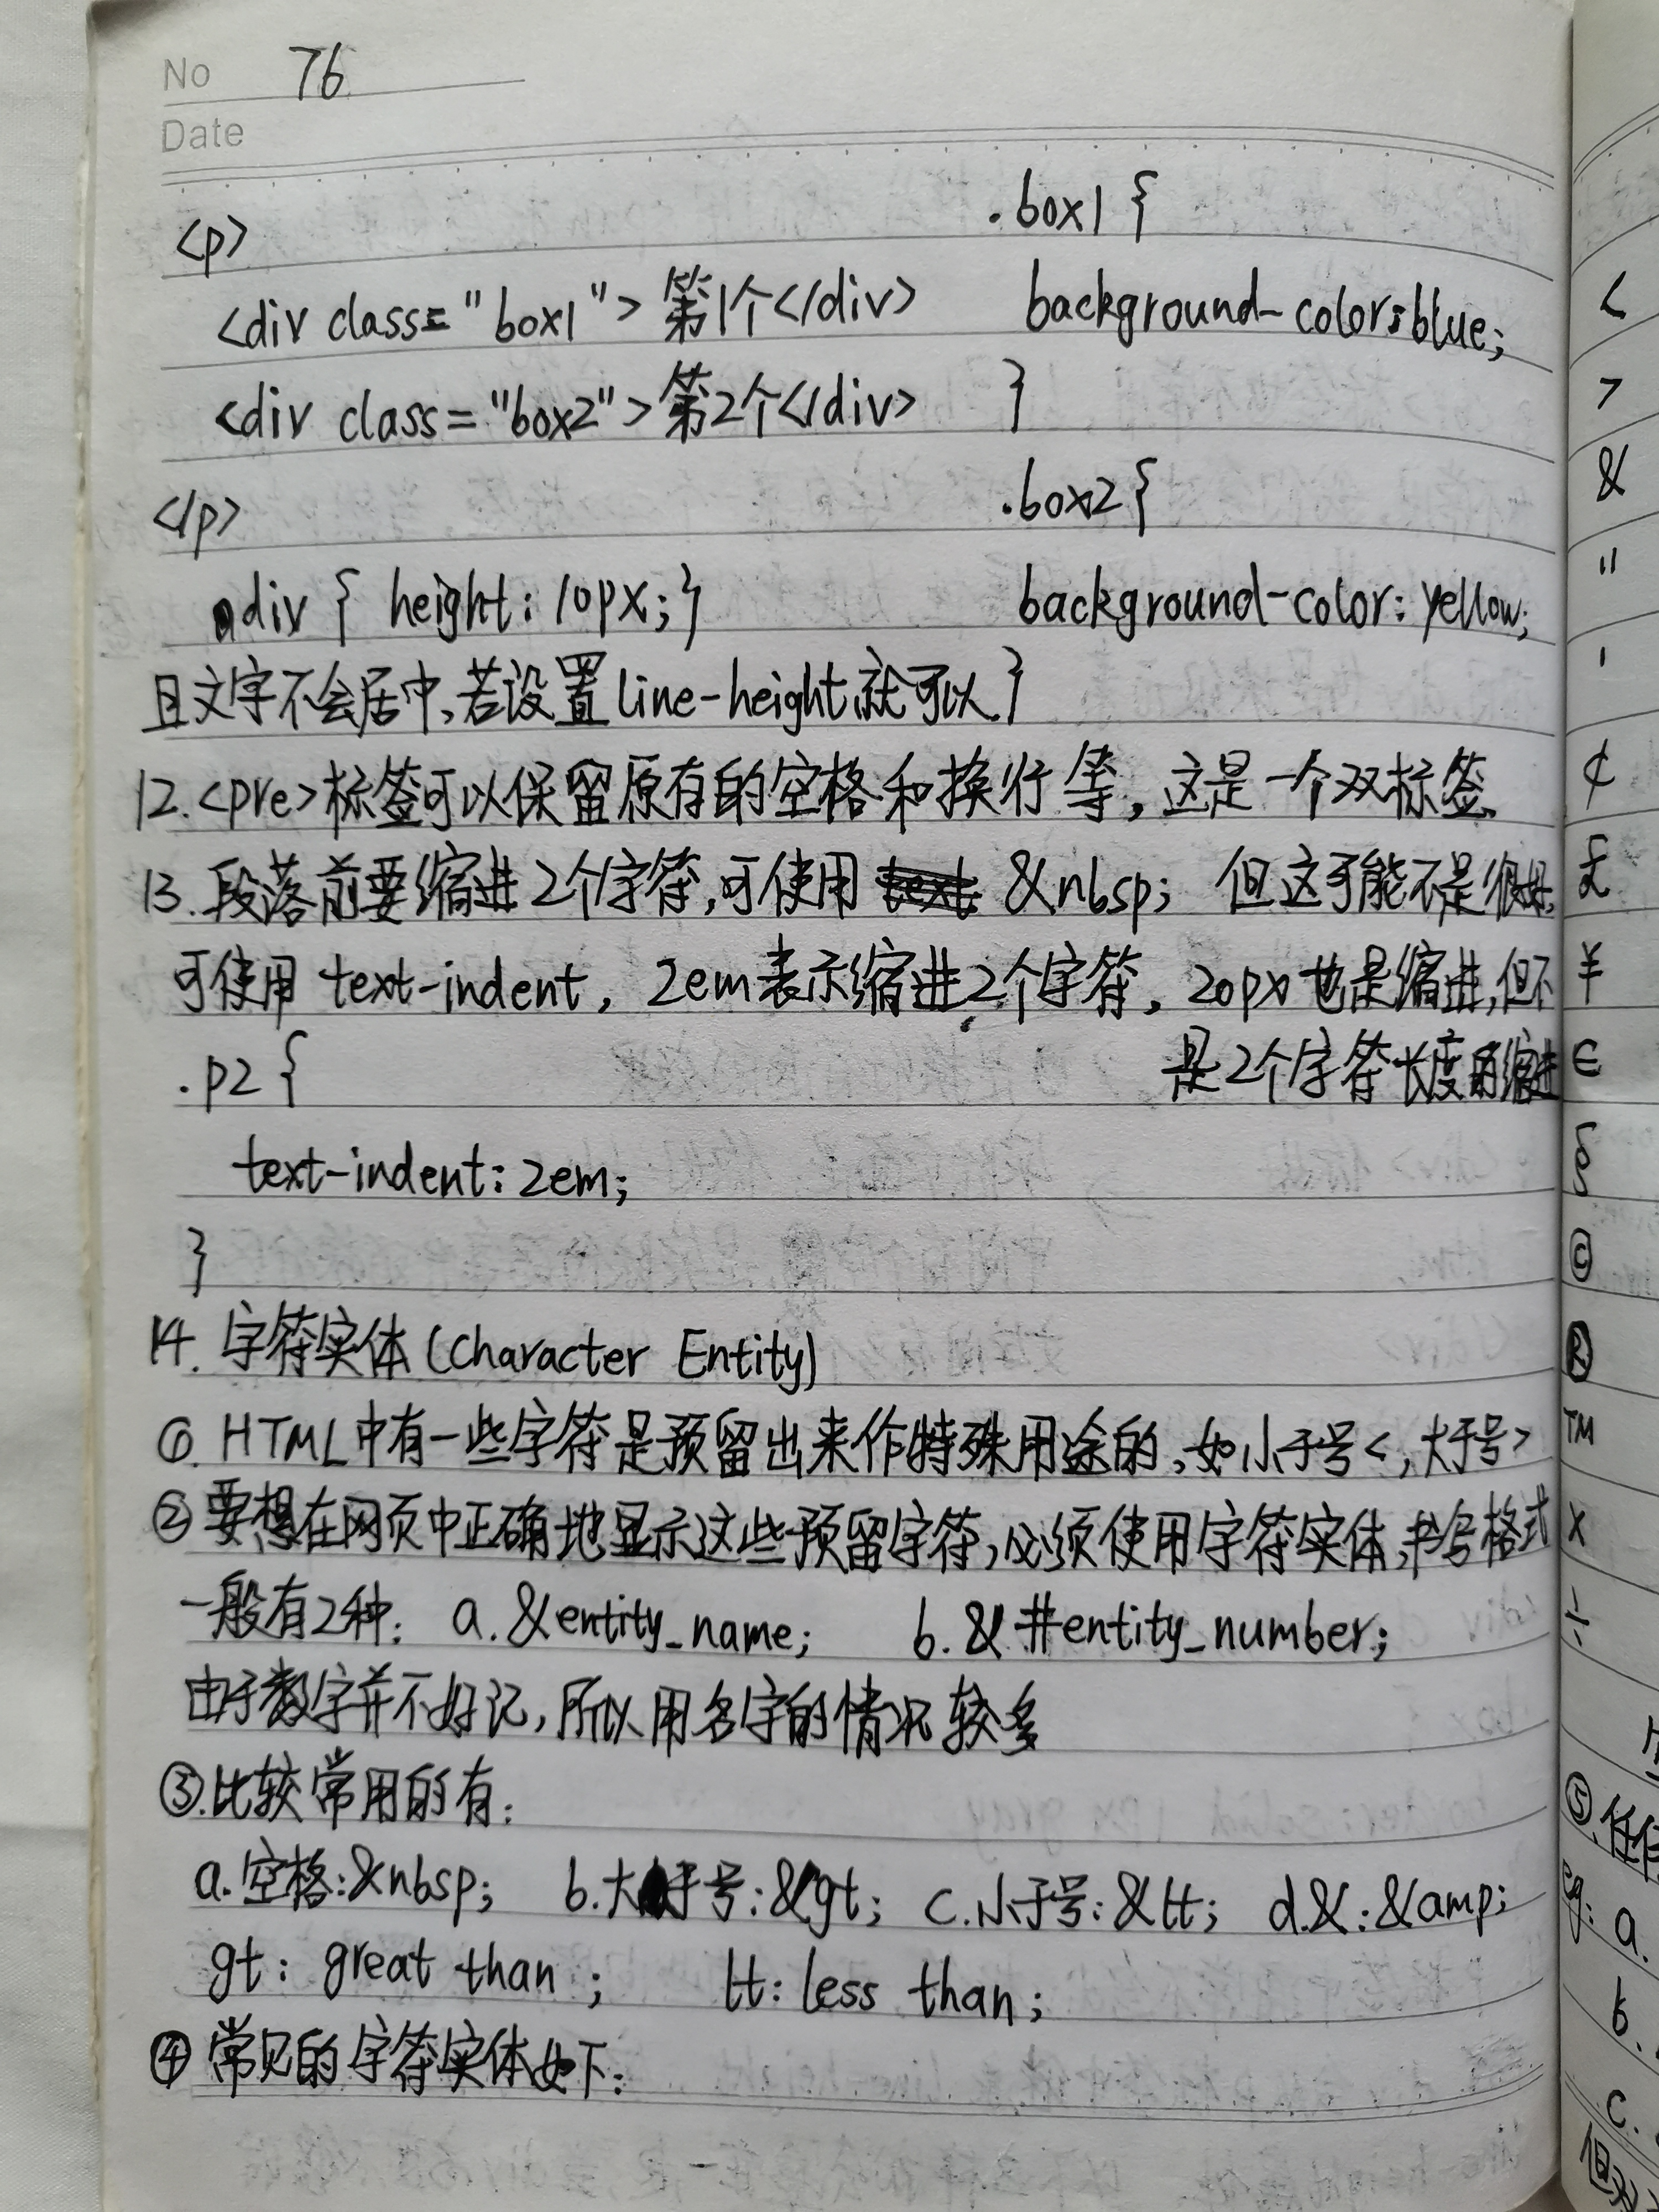 No 76
Date
<p>
.box1 {
<div class="box1">第1个</div>
background-color:blue;
<div class="box2">第2个</div>
}
</p>
.box2{
div { height: 10px; }
background-color: yellow;
且文字不会居中,若设置line-height就可以
}
12.<pre>标签可以保留原有的空格和换行等,这是一个双标签.
13.段落前要缩进2个字符,可使用 &nbsp; 但这可能不是很好,
可使用 text-indent, 2em表示缩进2个字符, 20px也是缩进,但不
是2个字符长度的缩进
.p2 {
text-indent: 2em;
}
14. 字符实体 (Character Entity)
①. HTML中有一些字符是预留出来作特殊用途的,如小于号<,大于号>
②要想在网页中正确地显示这些预留字符,必须使用字符实体,书写格式
一般有2种: a.&entity_name; b.&#entity_number;
由于数字并不好记,所以用名字的情况较多
③.比较常用的有:
a.空格:&nbsp; b.大于号:&gt; c.小于号:&lt; d.&:&amp;
gt: great than ; lt: less than ;
④常见的字符实体如下:
<
>
&
"
'
¢
£
¥
€
§
©
®
TM
×
÷
⑤.任
eg: a.
b.
c.
但